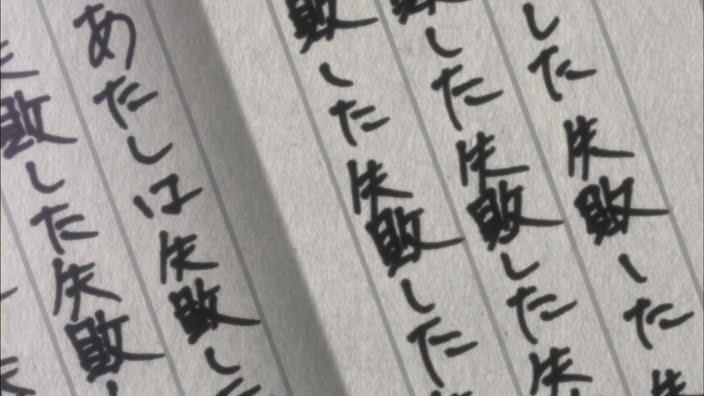 した失敗した失
敗した失敗した失
敗した失敗した
あたしは失敗した
失敗した失敗し